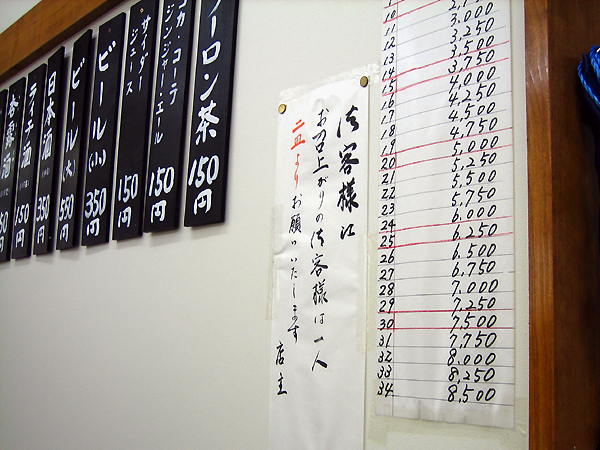 ーロン茶 150円
コカ・コーラ
ジンジャー・エール 150円
サイダー
ジュース 150円
ビール(小) 350円
ビール(大) 550円
日本酒 350円
ライチ酒 150円
杏露酒 50円
お客様に
お召上がりのお客様は一人
二皿よりお願いいたします
店主
10
11
12 3,000
13 3,250
14 3,500
15 3,750
16 4,000
17 4,250
18 4,500
19 4,750
20 5,000
21 5,250
22 5,500
23 5,750
24 6,000
25 6,250
26 6,500
27 6,750
28 7,000
29 7,250
30 7,500
31 7,750
32 8,000
33 8,250
34 8,500